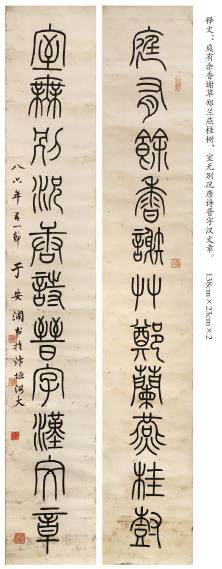 释文：庭有余香谢草郑兰燕桂树，室无别况唐诗晋字汉文章。 138cm×23cm×2
庭有餘香謝艸鄭蘭燕桂尌
室無別況唐詩晉字漢文章
八六年五一節于安瀾书於汴垣河大